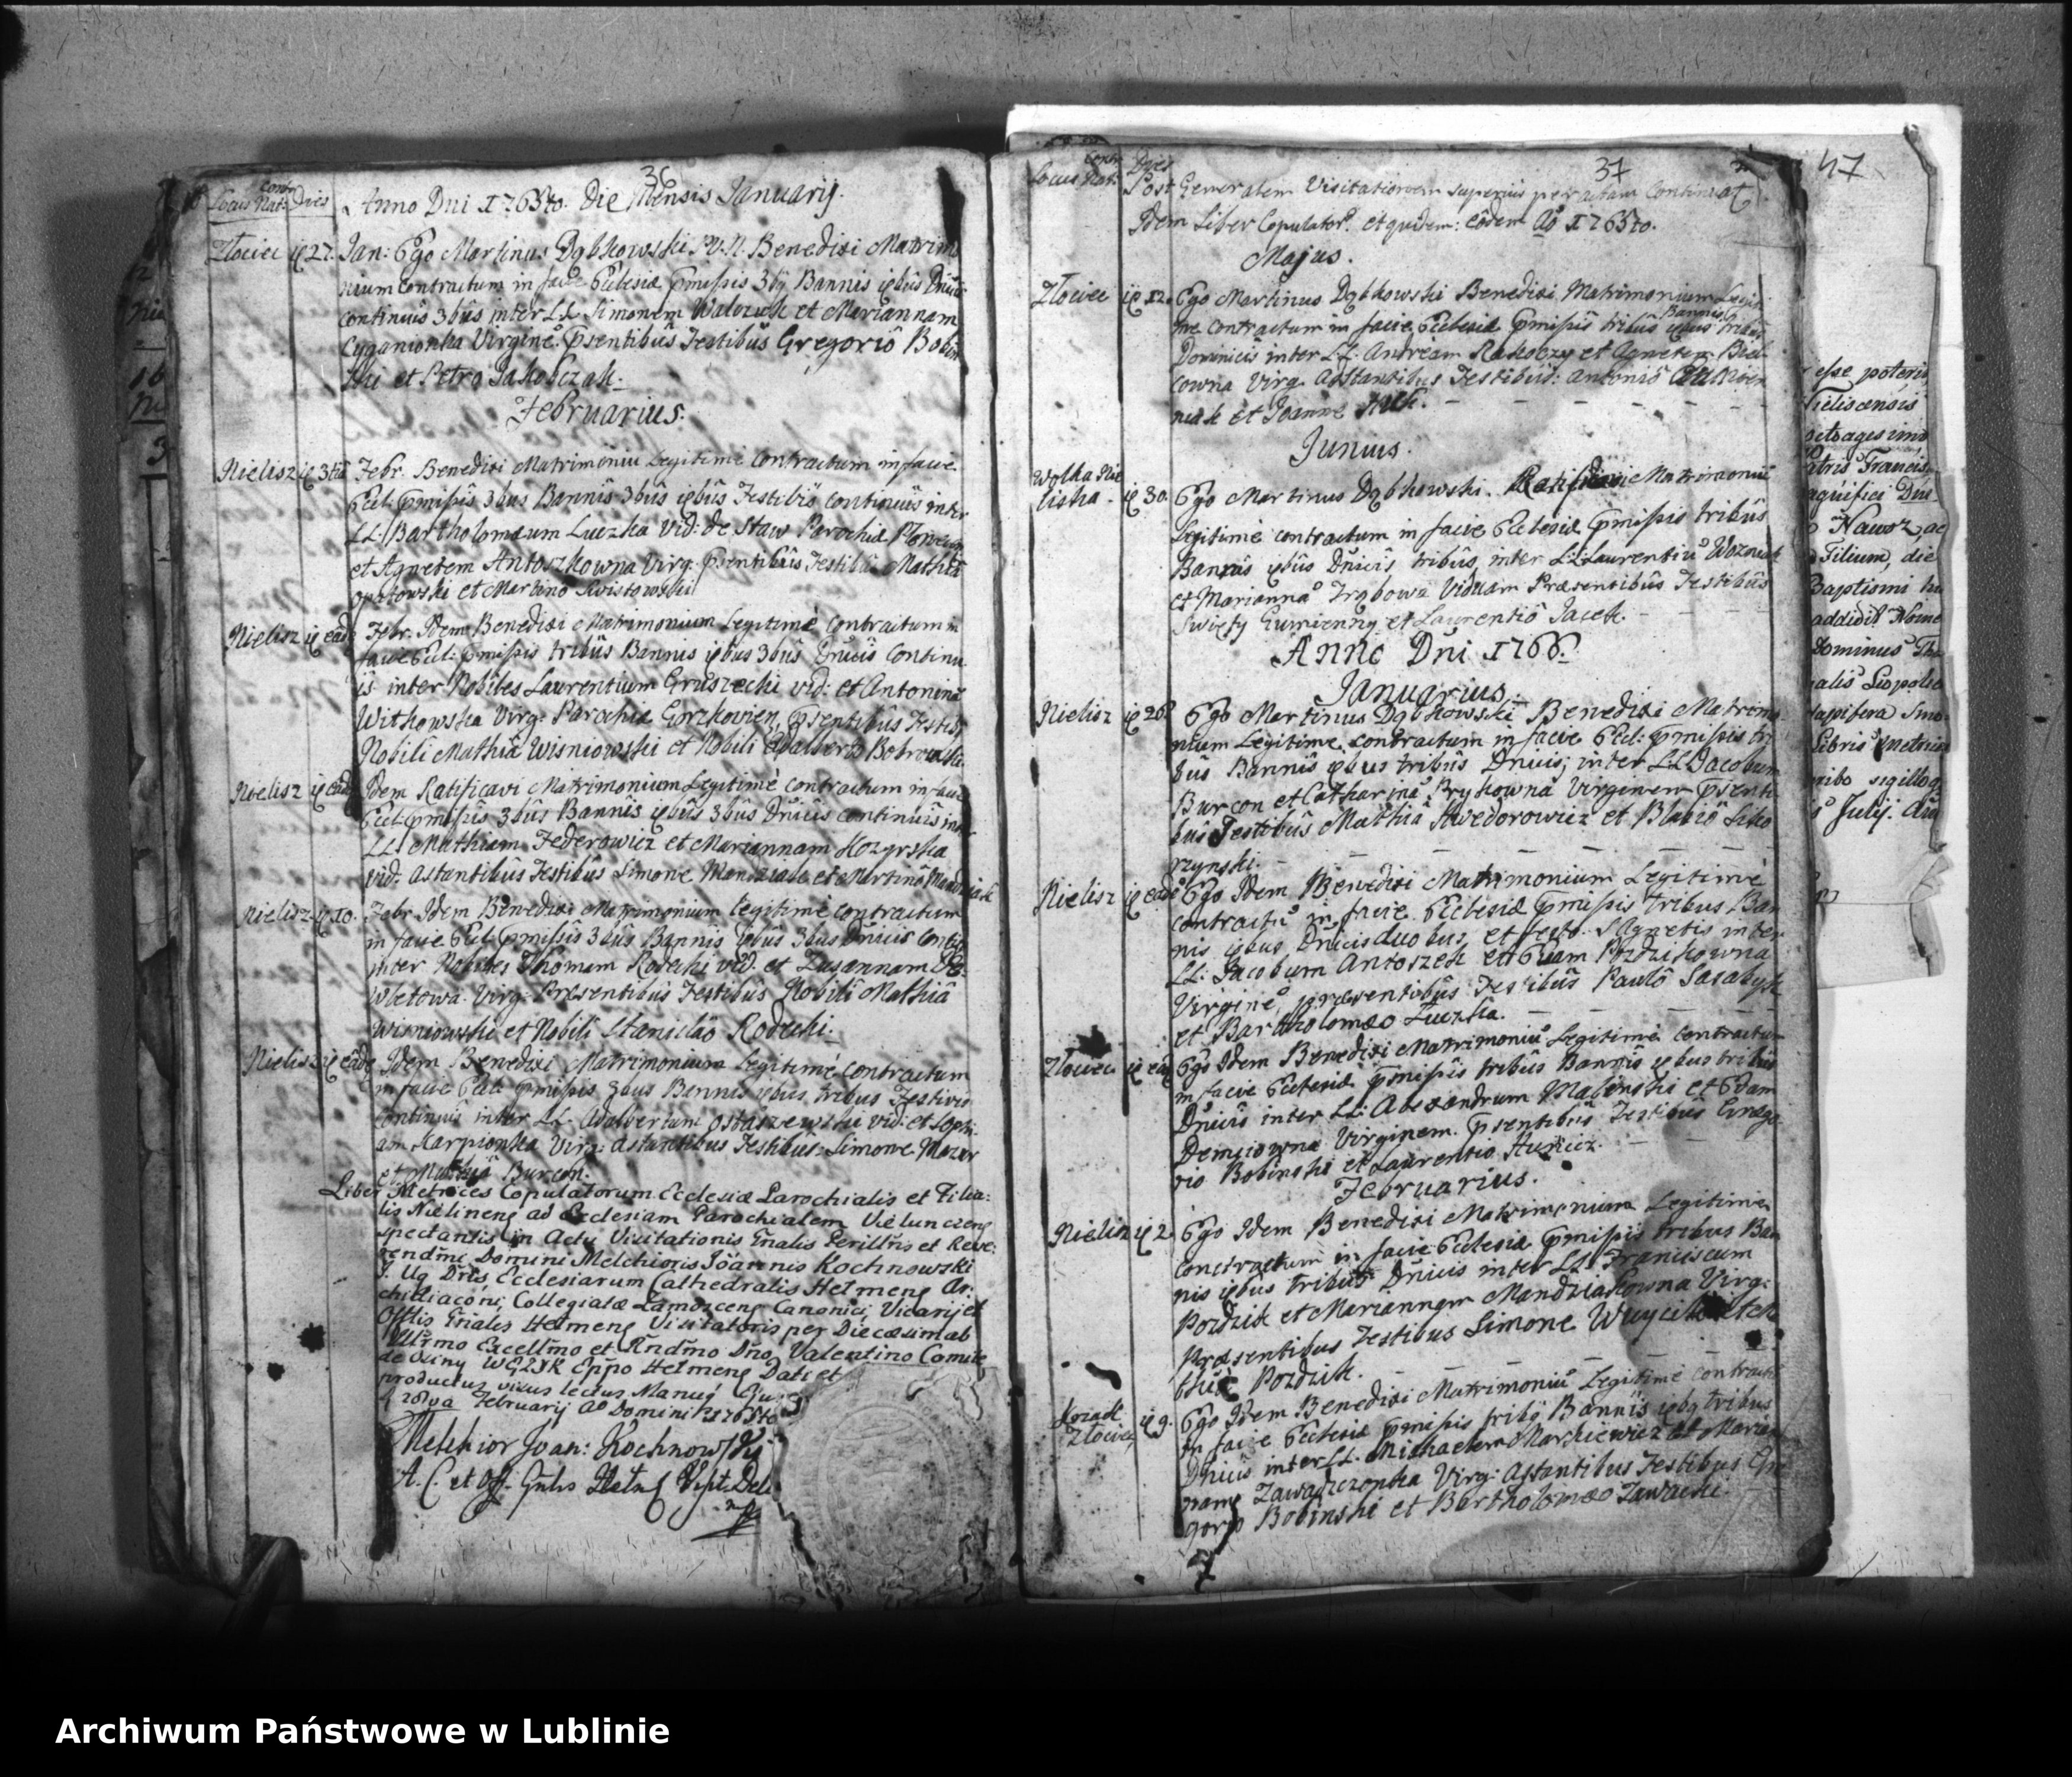 36
Locus Contr Nat: Dies
Anno Dni 1765to. Die Mensis Januarij.
Złoiec ię 27. Jan: Ego Martinus Dąbkowski Benedixi Matrimo
nium contractum in facie Ecclesiæ pmissis 3bq Bannis qbus Dnicis
continuis 3bus inter LL Simonem Walczuk et Mariannam
Cyganionka Virginē. Psentibus Testibus Gregorio Bobin
ski et Petro Jakobczak.
Februarius.
Nielisz ię 3tia Febr. Benedixi Matrimoniu Legitime Contractum in facie
Eccl: pmissis 3bus Bannis 3bus qbus Testibus continuis inter
LL: Bartholomæum Luczka Vid: de Staw Parochiæ
et Agnetem Antoszkowna Virg: psentibus Testibus Mathia
opatowski et Martino Swistowski
Nielisz ię eade Febr. Idem Benedixi Matrimonium Legitimè Contractum in
facie Eccl: pmissis tribus Bannis qbus 3bus Dnicis Continu
is inter Nobiles Laurentium Gruszecki vid: et Antonina
Witkowska Virg: Parochiæ Gorzkovien, psentibus Testib:
Nobili Mathia Wisniowski et Nobili Adalberto Bobrowski
Nielisz ię eade Idem Ratificavi Matrimonium Legitimè Contractum in facie
Eccl: pmissis 3bus Bannis qbus 3bus Dnicis continuis inter
LL Mathiam Federowicz et Mariannam Kozyrska
vid. astantibus Testibus Simone Mandziak et Martino
Nielisz ię 10. Febr. Idem Benedixi Matrimonium legitime contractum
in facie Eccl: pmissis 3bus Bannis qbus 3bus Dnicis Contin
inter Nobiles Thomam Rodecki vid. et Zusannam De:
wletowa Virg: Præsentibus Testibus Nobili Mathia
Wisniowski et Nobili Stanislao Rodecki.
Nielisz ię eade Idem Benedixi Matrimonium Legitimé Contractum
in facie Eccl: pmissis 3bus Bannis qbus tribus Festivis
continuis inter LL. Adalbertum Ostaszewski vid: et Sophi
am Karpionka Virg: astantibus Testibus: Simone Mazur
et Mathia Burcon.
Liber Metrices Copulatorum Ecclesiæ Parochialis et Filia:
lis Nielinens ad Ecclesiam Parochialem Vielunczens
spectantis in Actu Visitationis Gnalis Perillris et Reve:
rendmi Domini Melchioris Joannis Kochnowski
J. Ug Dris Ecclesiarum Cathedralis Hełmens Ar:
chidiaconi, Collegiatæ Zamoscens Canonici, Vicarij et
Offlis Gnalis Hełmens Visitatoris per Diæcesim ab
Illrmo Excellmo et Rndmo Dno Valentino Comite
de Osiny WĘŻYK Eppo Hełmens Dati et
productus visus lectus Manuq
D. 20ma Februarij Ao Domini 1765to
Melchior Joan: Kochnowski
A. C. et Off. Gnlis Hełns Visit: Dele
37
47
Locus Contr Nat: Dies
Post Generalem Visitationem superius peractam Continuat
Idem Liber Copulator. et quidem: eodem Ao 1765to.
Majus.
Złoiec ię 12. Ego Martinus Dąbkowski Benedixi Matrimonium Legiti
me contractum in facie Ecclesiæ pmissis tribus Bannis qbus tribus
Dominicis inter LL. Andream Rakoczy et Agnetem Biel
cowna Virg. Adstantibus Testibus: Antonio
niak et Joanne
Junius.
Wolka Nie
liska. ię 30. Ego Martinus Dąbkowski. Ratificavi Matrimoniu
Legitime contractum in facie Ecclesiæ pmissis tribus
Bannis qbus Dnicis tribus, inter LL: Laurentiu Wozniak
et Marianna Trąbowa Viduam Præsentibus Testibus
Swięty Gumienny et Laurentio Jacek.
Anno Dni 1766.
Januarius.
Nielisz ię 20 Ego Martinus Dąbkowski Benedixi Matrimo
nium Legitime contractum in facie Eccl: pmissis tri
bus Bannis qbus tribus Dnicis, inter LL Jacobum
Burcon et Catharina Prykowna Virginem psenti
bus Testibus Mathia Kwedorowicz et Blasio Siko
rzynski.
Nielisz ię eade Ego Idem Benedixi Matrimonium Legitimè
contractu in facie Ecclesiæ pmissis tribus Ban
nis qbus Dnicis duobus et festo S Agnetis inter
LL: Jacobum Antoszek et Evam Pozdzikowna
Virginē præsentibus Testibus Paulo Sarabyk
et Bartholomæo Łuczka.
Złoiec ię ead Ego Idem Benedixi Matrimoniu Legitime contractum
in facie Ecclesiæ pmissis tribus Bannis qbus tribus
Dnicis inter LL: Alexandrum Malinski et Evam
Demciowna Virginem psentibus Testibus Grego
rio Bobinski et Laurentio
Februarius.
Nielisz ię 2 Ego Idem Benedixi Matrimonium Legitime
contractum in facie Ecclesiæ pmissis tribus Ban
nis qbus tribus Dnicis inter LL Franciscum
Pozdzik et Mariannam Mandziakowna Virg:
Præsentibus Testibus Simone
Pozdzik.
Kosadl
Złoiec ię 9. Ego Idem Benedixi Matrimoniu Legitime contractu
in facie Ecclesiæ pmissis tribq Bannis qbq tribus
Dnicis inter LL. Michaelem Markiewicz et Marian
nam Zawadczonka Virg: Astantibus Testibus Gre
gorio Bobinski et Bartholomæo Zawadzki.
esse poterit
Nieliscensis
octoagesimo
Patris Francis
agnifici Dni
Nawoz, ac
Filium, die
Baptismi
addidit Nome
Dominus
alis Leopolie
dapifera
Libris
sigilloq
Julij.
Archiwum Państwowe w Lublinie